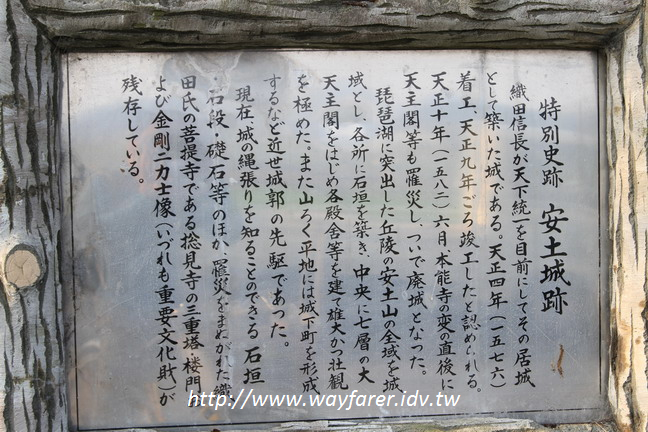 特別史跡 安土城跡
織田信長が天下統一を目前にしてその居城
として築いた城である。天正四年(一五七六)
着工、天正九年ごろ竣工したと認められる。
天正十年(一五八二)六月本能寺の変の直後に
天主閣等も罹災し、ついで廃城となった。
琵琶湖に突出した丘陵の安土山の全域を城
域とし、各所に石垣を築き、中央に七層の大
天主閣をはじめ各殿舎等を建て雄大かつ壮観
を極めた。また山ろく平地には城下町を形成
するなど近世城郭の先駆であった。
現在、城の縄張りを知ることのできる石垣
・石段・礎石等のほか、罹災をまぬがれた織
田氏の菩提寺である捴見寺の三重塔・楼門お
よび金剛二力士像(いづれも重要文化財)が
残存している。
http://www.wayfarer.idv.tw